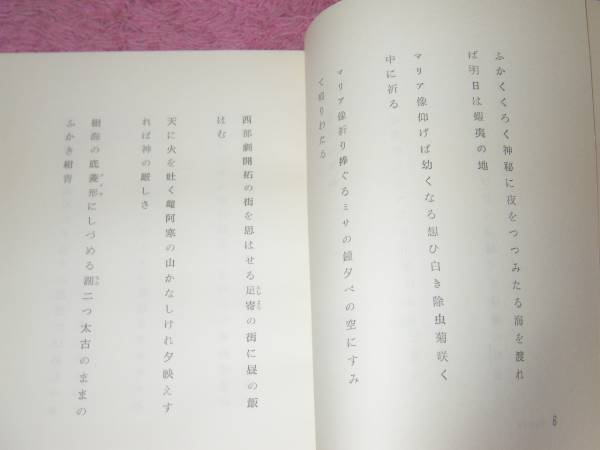 ふかくくろく神秘に夜をつつみたる海を渡れ
ば明日は蝦夷の地
マリア像仰げば幼くなる想ひ白き除虫菊咲く
中に祈る
マリア像祈り捧ぐるミサの鐘夕べの空にすみ
く鳴りわたる
6
西部劇開拓の街を思はせる足寄の街に昼の飯
はむ
天に火を吐く雌阿寒の山かなしけれ夕映えす
れば神の厳しさ
樹海の底菱形にしづめる湖二つ太古のままの
ふかき紺青